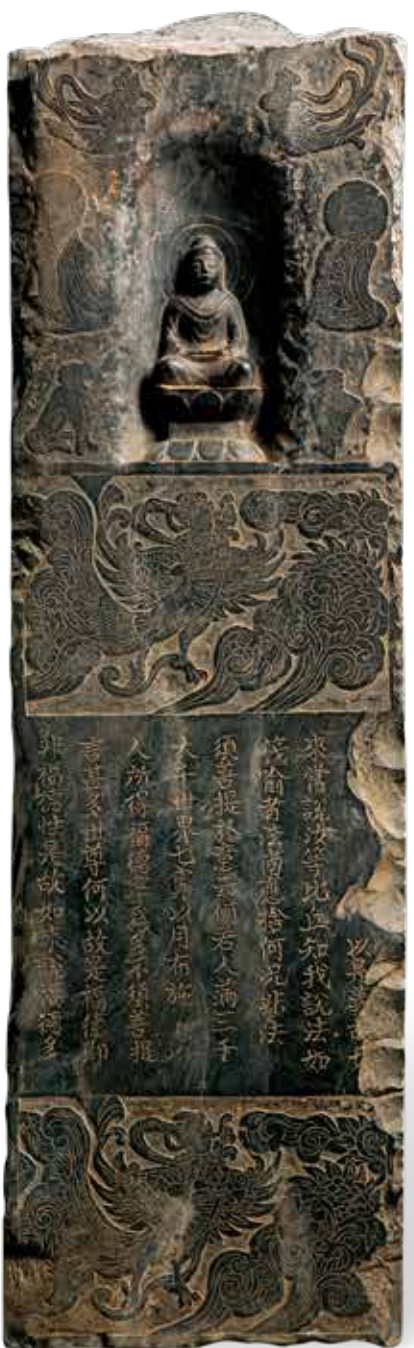 以是義
來常說汝等比丘知我說法如
筏喻者法尚應捨何況非法
須菩提於意云何若人滿三千
大千世界七寶以用布施是
人所得福德寧為多不須菩提
言甚多世尊何以故是福德即
非福德性是故如來說福德多